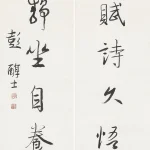 賦詩久悟
靜坐自養
彭醇士